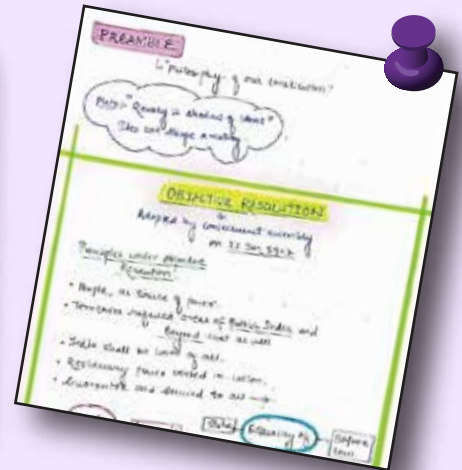 PREAMBLE
"philosophy of our constitution"
Plato: "Reality is shadow of ideas"
Idea can shape a reality
OBJECTIVE RESOLUTION
Adopted by constituent assembly
on 22 Jan, 1947
Principles under objective
Resolution:
• People, as source of power.
• Territories areas of British India and
Beyond that as well
• India shall be of all.
• Residuary power vested in
• Guarantee and secured to all →
Equality of
before
law